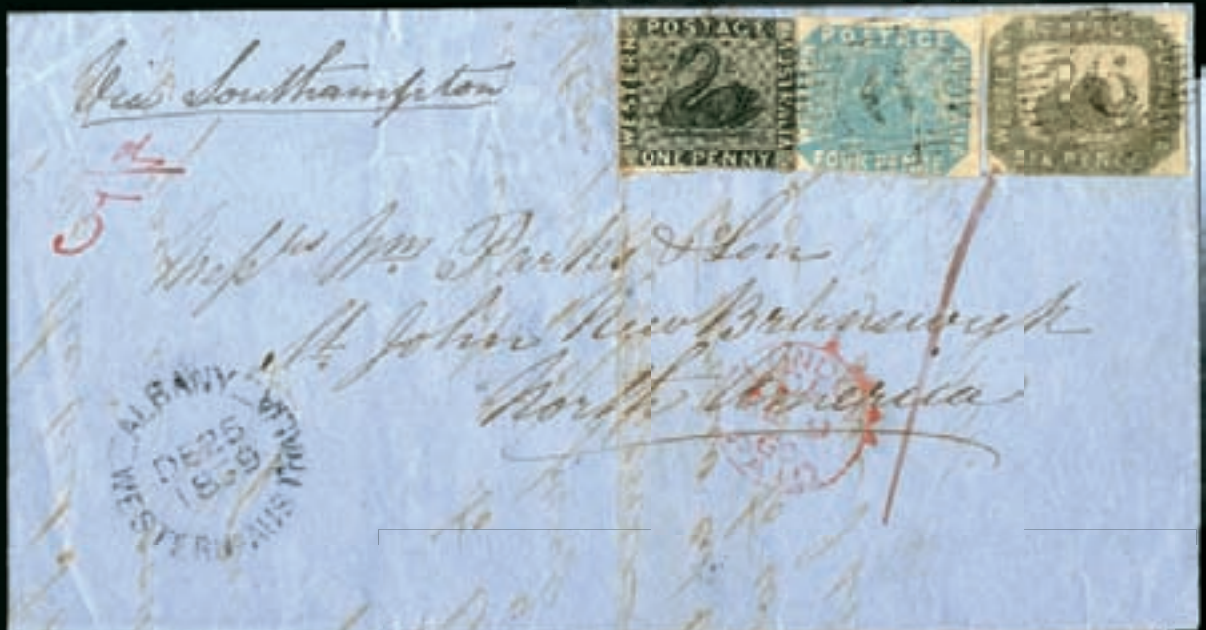 Via Southampton
POSTAGE
WESTERN
AUSTRALIA
ONE PENNY
POSTAGE
FOUR PENCE
POSTAGE
WESTERN
SIX PENCE
Mess^rs W^m Parks & Son
St. John New Brunswyk
North America
ALBANY
DE 26
1859
WESTERN AUSTRALIA
PAID